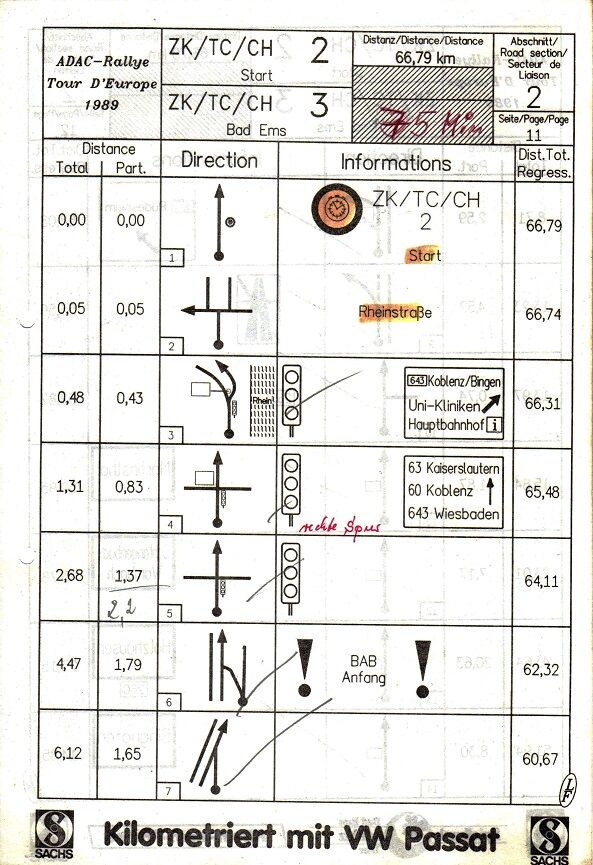 ADAC-Rallye
Tour D'Europe
1989
ZK/TC/CH 2
Start
ZK/TC/CH 3
Bad Ems
Distanz/Distance/Distance
66,79 km
75 Min
Abschnitt/
Road section/
Secteur de
Liaison
2
Seite/Page/Page
11
Distance
Total Part.
Direction
Informations
Dist.Tot.
Regress.
0,00 0,00
1
ZK/TC/CH
2
Start
66,79
0,05 0,05
2
Rheinstraße
66,74
0,48 0,43
3
Rhein
643 Koblenz/Bingen
Uni-Kliniken
Hauptbahnhof i
66,31
1,31 0,83
4
rechte Spur
63 Kaiserslautern
60 Koblenz
643 Wiesbaden
65,48
2,68 1,37
2,2
5
64,11
4,47 1,79
6
! BAB !
Anfang
62,32
6,12 1,65
7
60,67
L/F
S
SACHS
Kilometriert mit VW Passat
S
SACHS